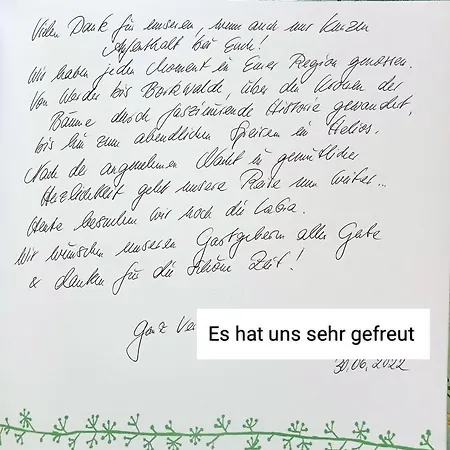 Vielen Dank für unseren, wenn auch nur kurzen
Aufenthalt bei Euch!
Wir haben jeden Moment in Eurer Region genossen.
Von Werder bis Borkwalde, über die Kronen der
Bäume durch faszinierende Historie gewandert,
bis hin zum abendlichen Speisen im Helios.
Nach der angenehmen Nacht in gemütlicher
Herzlichkeit geht unsere Reise nun weiter...
Heute besuchen wir noch die LaGa.
Wir wünschen unseren Gastgebern alles Gute
& danken für die schöne Zeit!
Ganz
Es hat uns sehr gefreut
30.06.2022